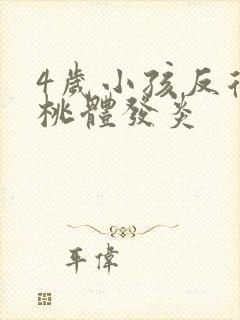 4歲小孩反復
桃體發炎
年偉